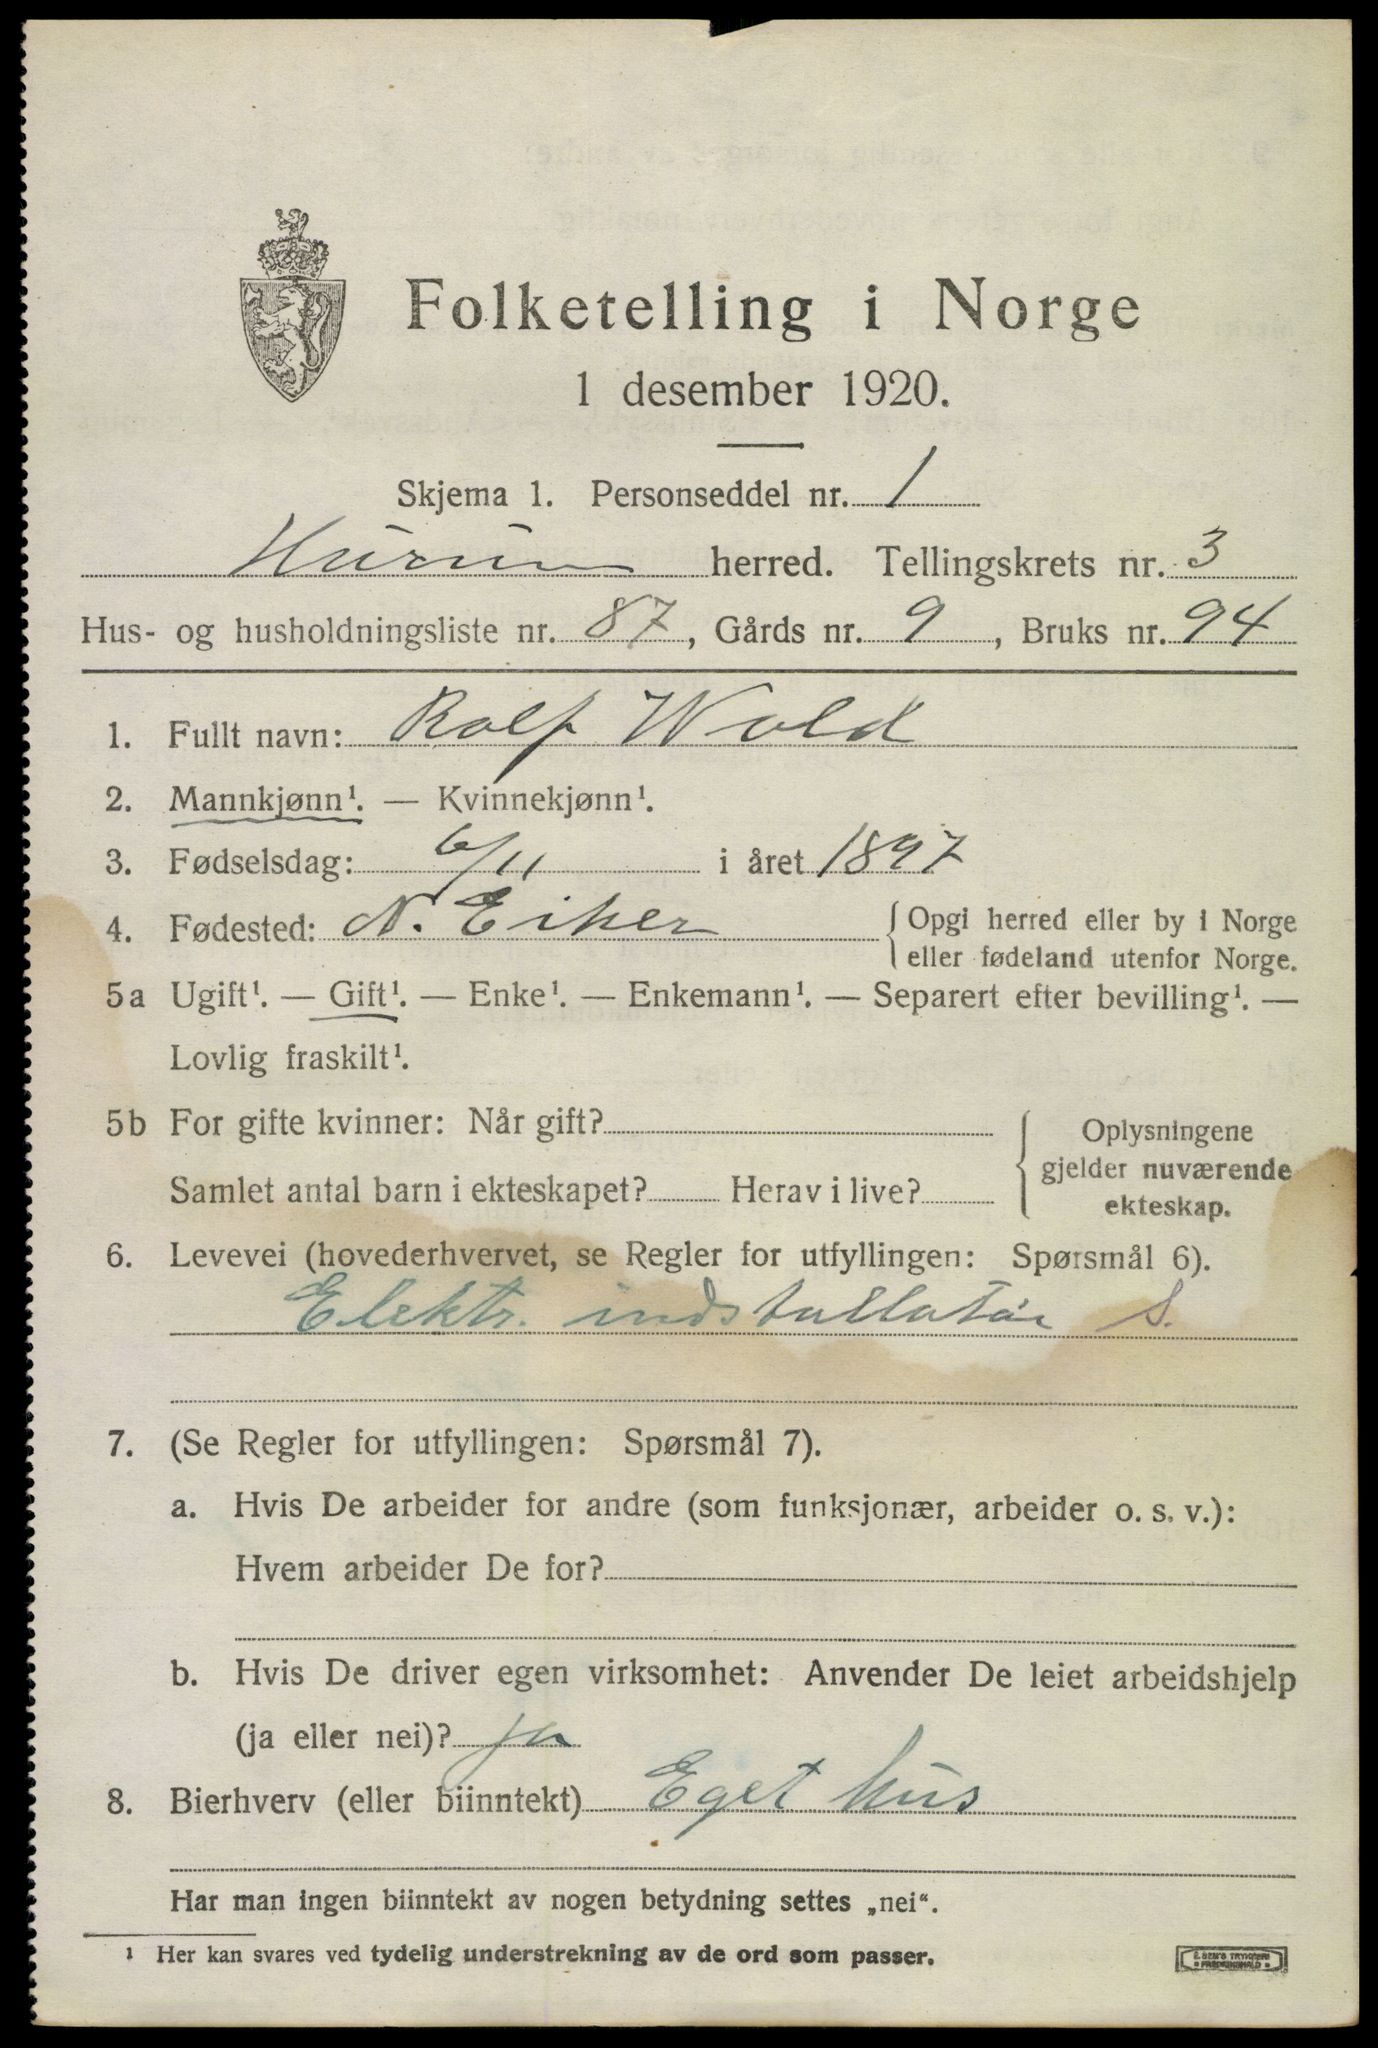 Folketelling i Norge
1 desember 1920.
Skjema 1. Personseddel nr. 1
Hurum herred. Tellingskrets nr. 3
Hus- og husholdningsliste nr. 87, Gårds nr. 9, Bruks nr. 94
1. Fullt navn: Rolf Wold
2. Mannkjønn¹. — Kvinnekjønn¹.
3. Fødselsdag: 6/11 i året 1897
4. Fødested: N. Eiker { Opgi herred eller by i Norge
eller fødeland utenfor Norge.
5a Ugift¹. — Gift¹. — Enke¹. — Enkemann¹. — Separert efter bevilling¹. —
Lovlig fraskilt¹.
5b For gifte kvinner: Når gift?
Samlet antal barn i ekteskapet? Herav i live?
{ Oplysningene
gjelder nuværende
ekteskap.
6. Levevei (hovederhvervet, se Regler for utfyllingen: Spørsmål 6).
Elektr. indstallatør S.
7. (Se Regler for utfyllingen: Spørsmål 7).
a. Hvis De arbeider for andre (som funksjonær, arbeider o. s. v.):
Hvem arbeider De for?
b. Hvis De driver egen virksomhet: Anvender De leiet arbeidshjelp
(ja eller nei)? ja
8. Bierhverv (eller biinntekt) Eget hus
Har man ingen biinntekt av nogen betydning settes „nei“.
¹ Her kan svares ved tydelig understrekning av de ord som passer.
E. SEM'S TRYKKERI
FREDRIKSHALD